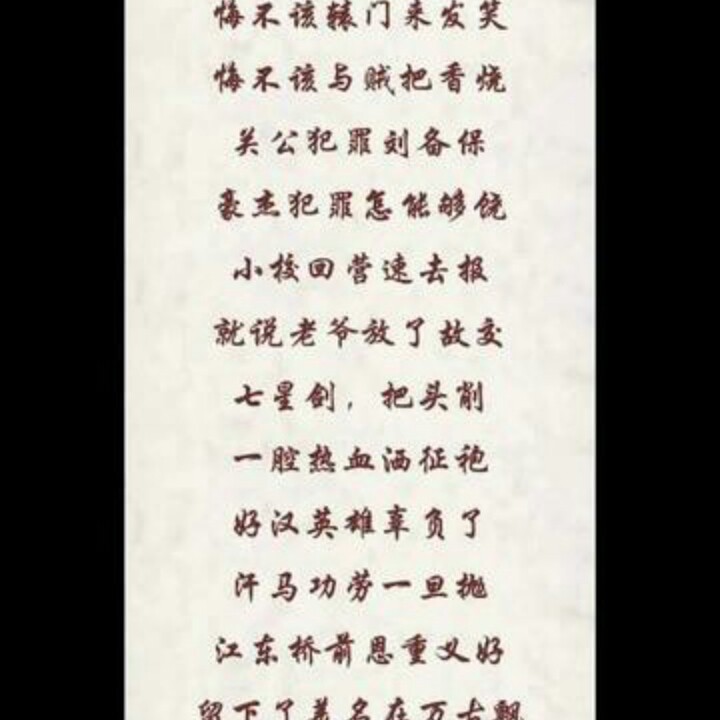 悔不该辕门来发笑
悔不该与贼把香烧
关公犯罪刘备保
豪杰犯罪怎能够饶
小校回营速去报
就说老爷放了故交
七星剑，把头削
一腔热血洒征袍
好汉英雄辜负了
汗马功劳一旦抛
江东桥前恩重义好
留下了美名在万古飘